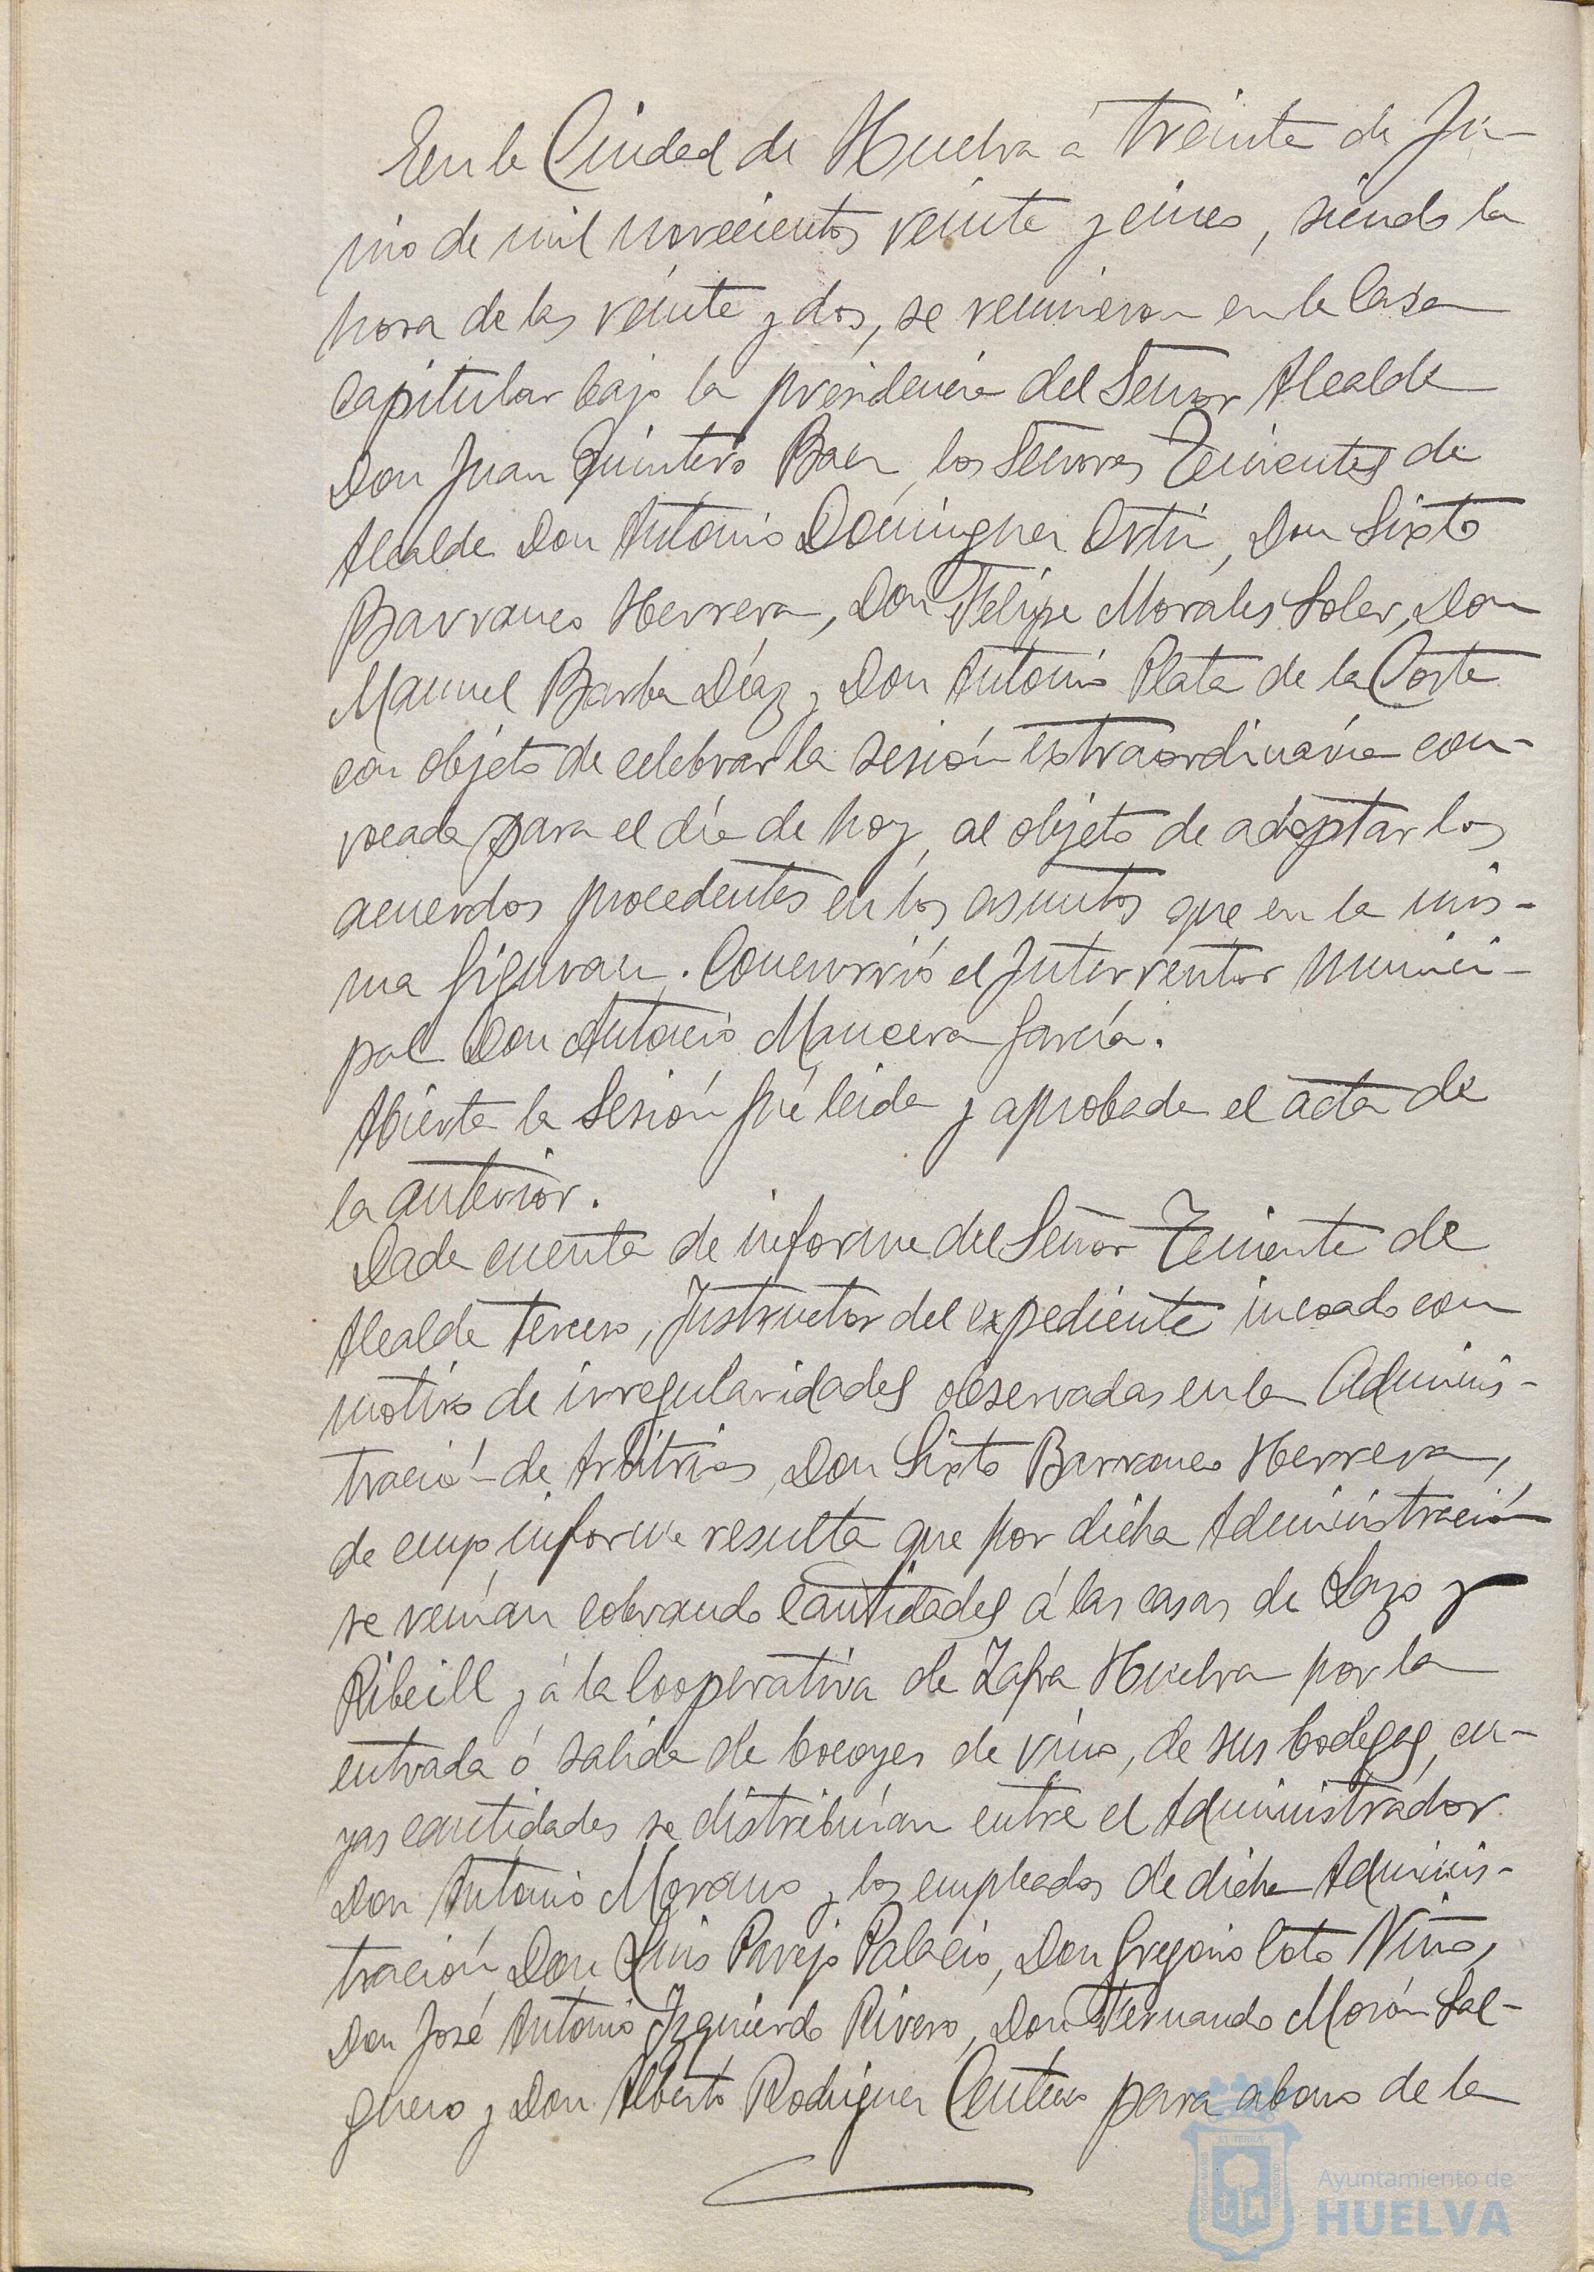 En la Ciudad de Huelva á treinta de Ju-
nio de mil novecientos veinte y cinco, siendo la
hora de las veinte y dos, se reunieron en la Casa
Capitular bajo la presidencia del Señor Alcalde
Don Juan Quintero Baez, los Señores Tenientes de
Alcalde Don Antonio Dominguez Ortiz, Don Sixto
Barranco Herrera, Don Felipe Morales Soler, Don
Manuel Barba Díaz y Don Antonio Plata de la Corte
con objeto de celebrar la sesión extraordinaria con-
vocada para el día de hoy, al objeto de adoptar los
acuerdos procedentes en los asuntos que en la mis-
ma figuran. Concurrió el Interventor munici-
pal Don Antonio Mancera García.
Abierta la Sesión fué leida y aprobada el acta de
la anterior.
Dada cuenta de informe del Señor Teniente de
Alcalde tercero, Instructor del expediente incoado con
motivo de irregularidades observadas en la Adminis-
tración de Arbitrios, Don Sixto Barranco Herrera,
de cuyo informe resulta que por dicha Administración
se venían cobrando cantidades á las casas de Lazo y
Ribeill y á la Cooperativa de Zafra Huelva por la
entrada ó salida de bocoyes de vino, de sus bodegas, cu-
yas cantidades se distribuían entre el Administrador
Don Antonio Morano y los empleados de dicha Adminis-
tración, Don Luis Parejo Palacio, Don Gregorio Coto Niño,
Don José Antonio Izquierdo Rivero, Don Fernando Morón Sal-
guero y Don Alberto Rodriguez Centeno para abono de la
Ayuntamiento de
HUELVA